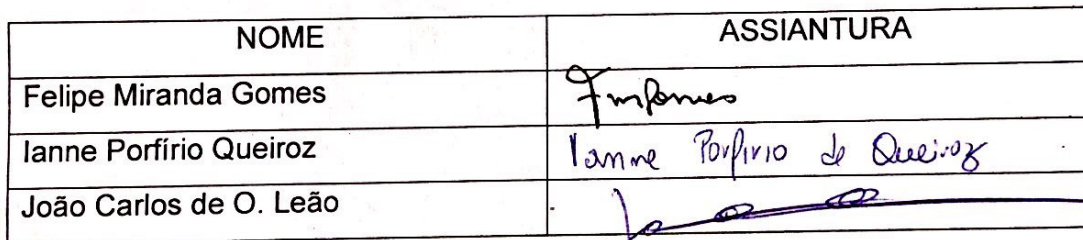 NOME ASSIANTURA
Felipe Miranda Gomes
Ianne Porfírio Queiroz Ianne Porfirio de Queiroz
João Carlos de O. Leão